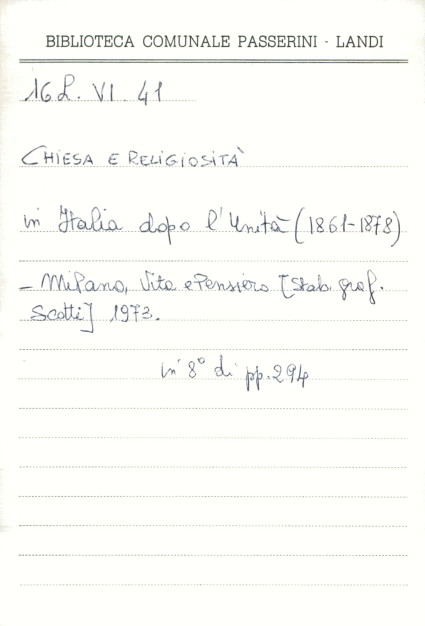 BIBLIOTECA COMUNALE PASSERINI - LANDI
16 L. VI. 41
CHIESA E RELIGIOSITÀ
in Italia dopo l'Unità (1861-1878)
- Milano, Vita e Pensiero [Stab. graf.
Scotti] 1973.
in 8° di pp. 294